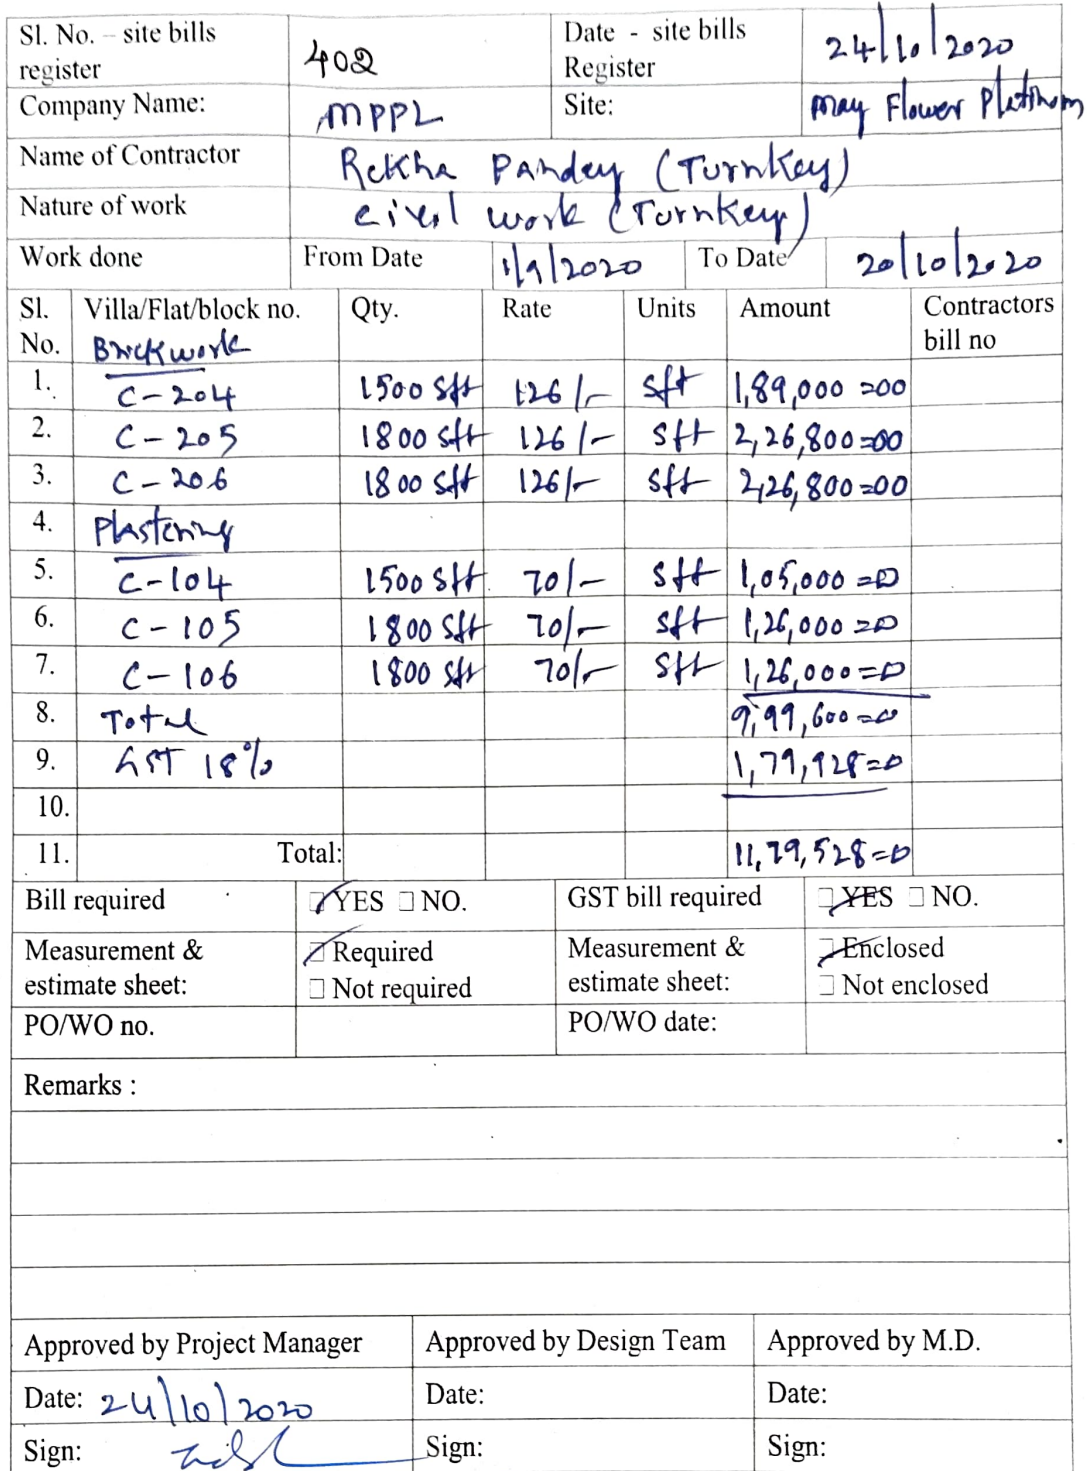 Sl. No. – site bills register 402 Date - site bills Register 24/10/2020
Company Name: MPPL Site: May Flower Platinum
Name of Contractor Rekha Pandey (Turnkey)
Nature of work civil work (Turnkey)
Work done From Date 1/9/2020 To Date 20/10/2020
Sl. No. Villa/Flat/block no. Qty. Rate Units Amount Contractors bill no
Brickwork
1. C-204 1500 sft 126/- sft 1,89,000=00
2. C-205 1800 sft 126/- sft 2,26,800=00
3. C-206 1800 sft 126/- sft 2,26,800=00
4. Plastering
5. C-104 1500 sft 70/- sft 1,05,000=0
6. C-105 1800 sft 70/- sft 1,26,000=0
7. C-106 1800 sft 70/- sft 1,26,000=0
8. Total 9,99,600=0
9. GST 18% 1,79,928=0
10.
11. Total: 11,79,528=0
Bill required YES NO. GST bill required YES NO.
Measurement & estimate sheet: Required Not required Measurement & estimate sheet: Enclosed Not enclosed
PO/WO no. PO/WO date:
Remarks :
Approved by Project Manager Approved by Design Team Approved by M.D.
Date: 24/10/2020 Date: Date:
Sign: Sign: Sign: